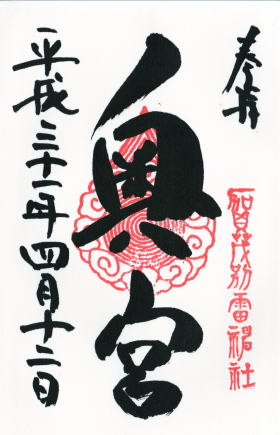 奉拝
賀茂別雷神社
奥宮
平成三十一年四月十二日